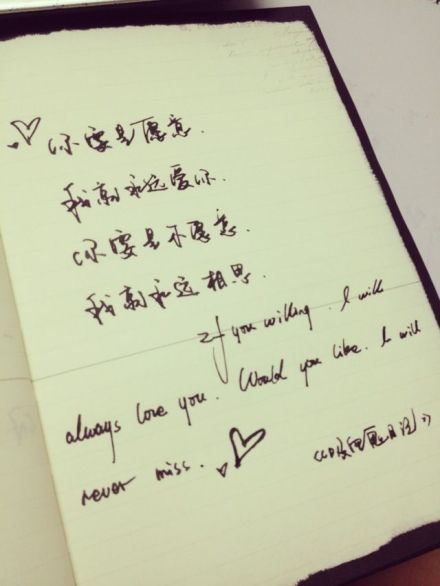 你要是愿意.
我就永远爱你.
你要是不愿意.
我就永远相思.
If you willing. I will
always love you. Would you like. I will
never miss.